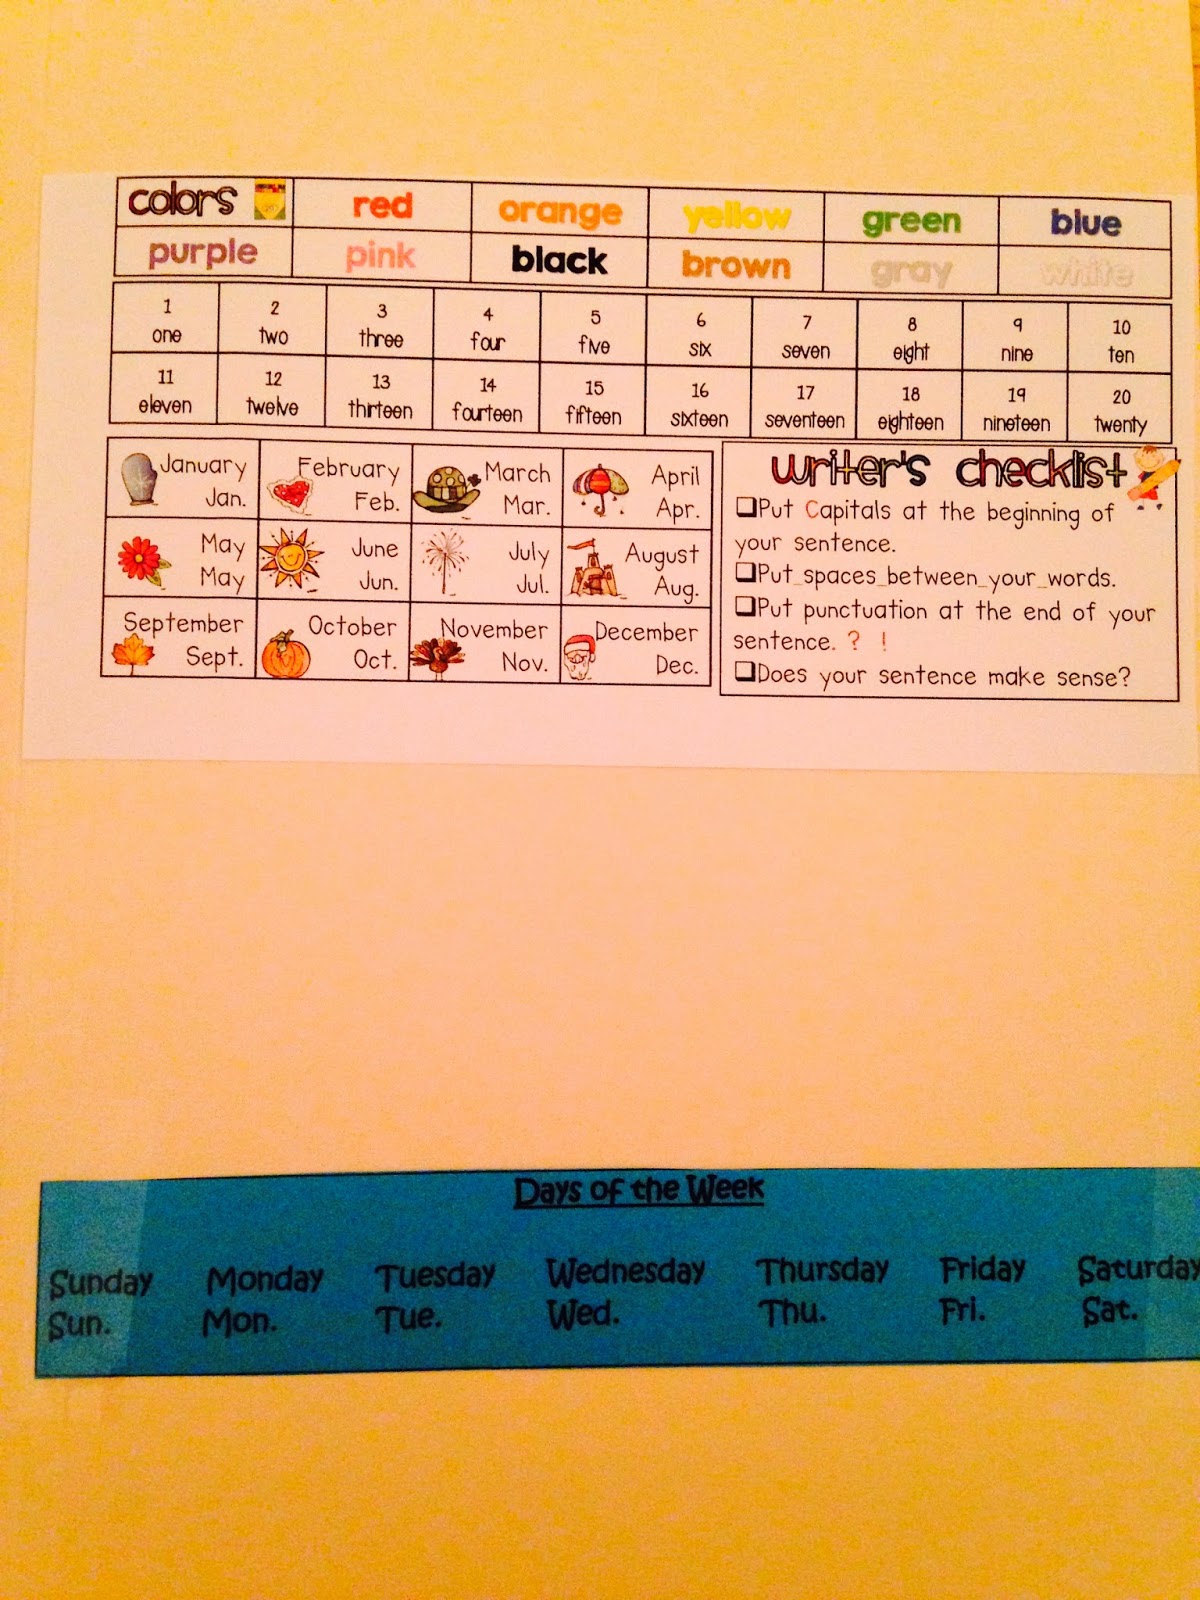 colors red orange yellow green blue
purple pink black brown gray white
1 2 3 4 5 6 7 8 9 10
one two three four five six seven eight nine ten
11 12 13 14 15 16 17 18 19 20
eleven twelve thirteen fourteen fifteen sixteen seventeen eighteen nineteen twenty
January February March April
Jan. Feb. Mar. Apr.
May June July August
May Jun. Jul. Aug.
September October November December
Sept. Oct. Nov. Dec.
writer's checklist
❑Put Capitals at the beginning of
your sentence.
❑Put_spaces_between_your_words.
❑Put punctuation at the end of your
sentence. ? !
❑Does your sentence make sense?
Days of the Week
Sunday Monday Tuesday Wednesday Thursday Friday Saturday
Sun. Mon. Tue. Wed. Thu. Fri. Sat.